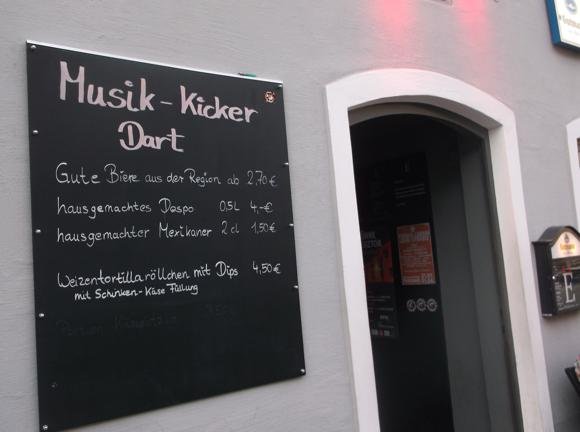 Musik - Kicker
Dart
Gute Biere aus der Region ab 2,70 €
hausgemachtes Despo 0,5L 4,-€
hausgemachter Mexikaner 2 cl 1,50€
Weizentortillaröllchen mit Dips 4,50€
mit Schinken-Käse Füllung
Portion
E